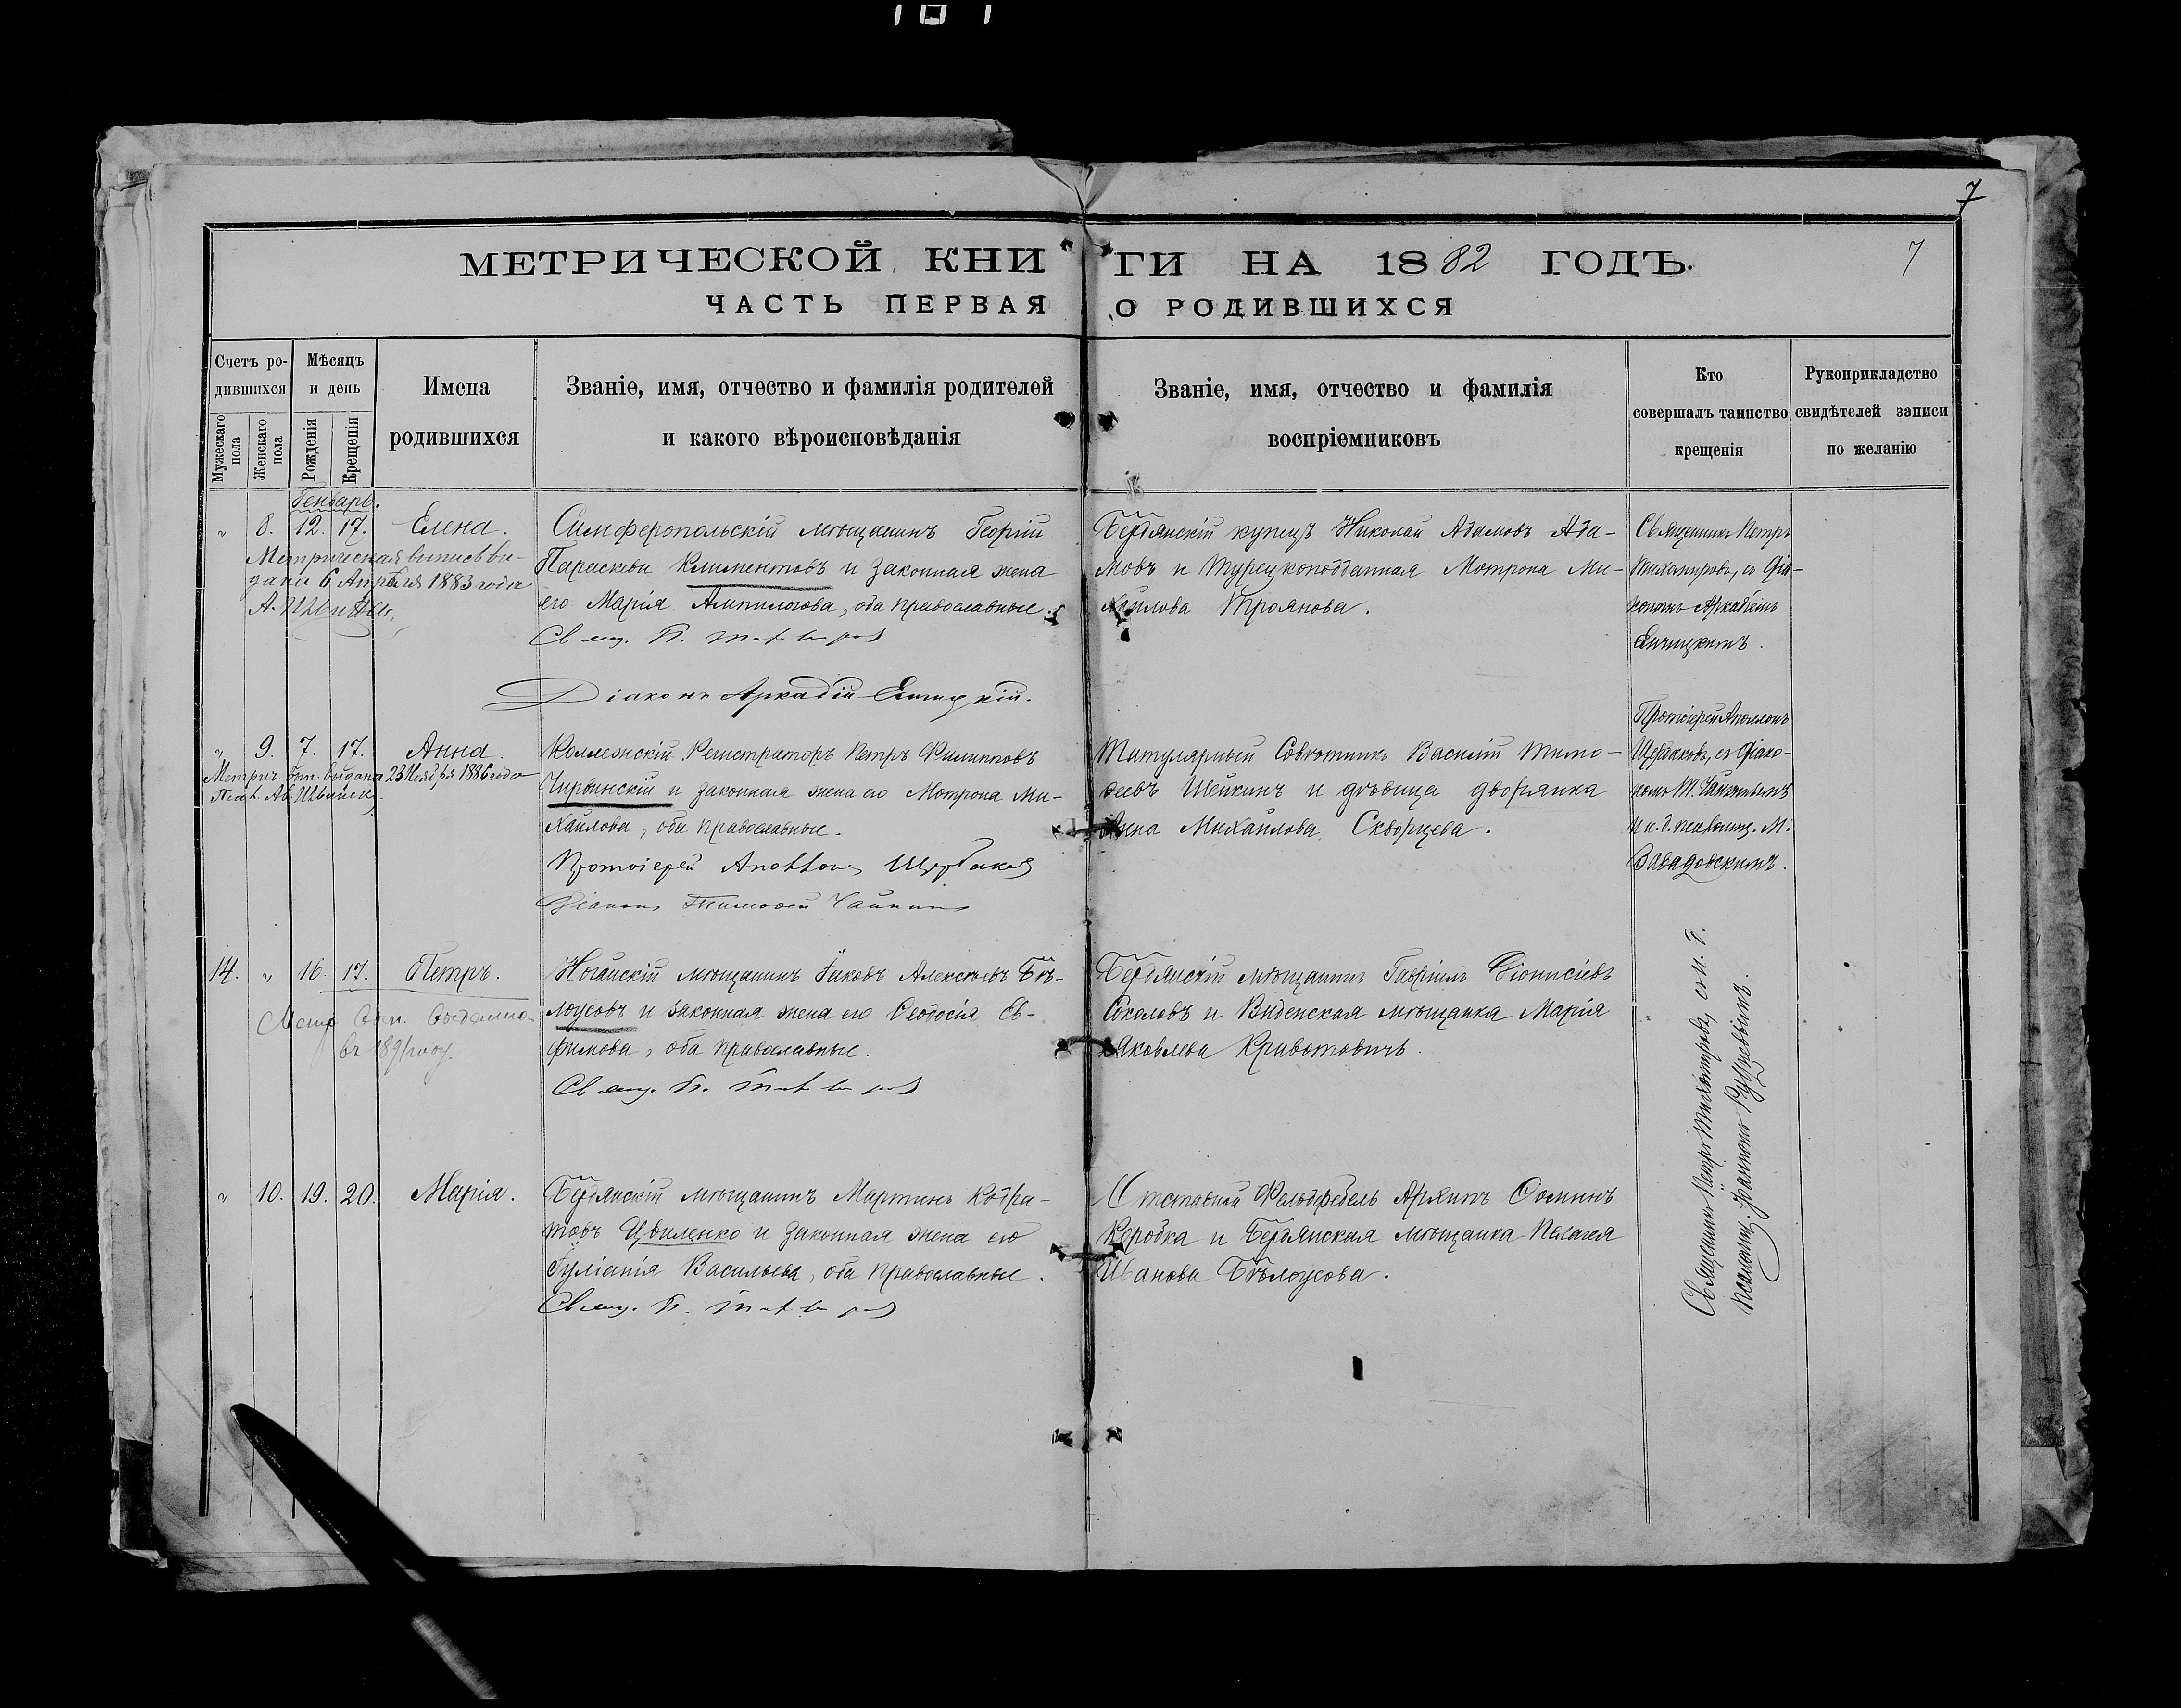 7
МЕТРИЧЕСКОЙ КНИГИ НА 1882 ГОДЪ.
7
ЧАСТЬ ПЕРВАЯ О РОДИВШИХСЯ
Счетъ ро-
дившихся
Мужескаго пола
Женскаго пола
Мѣсяцъ
и день
Рожденія
Крещенія
Имена
родившихся
Званіе, имя, отчество и фамилія родителей
и какого вѣроисповѣданія
Званіе, имя, отчество и фамилія
воспріемниковъ
Кто
совершалъ таинство
крещенія
Рукоприкладство
свидѣтелей записи
по желанію
Генварь.
„ 8. 12. 17. Елена.
Метрическая выпись вы-
дана 6 Апрѣля 1883 года
Симферопольскій мѣщанинъ Георгій
Параскеви Климентовъ и законная жена
его Марія Ампилогова, оба православные.
Свящ. П.
Діаконъ Аркадій Енчицкій.
Бердянскій купецъ Николай Адамовъ Ада-
мовъ и Турецкоподданная Мотрона Ми-
хайлова Троянова.
Священникъ Петръ
Тихомировъ, съ Діа-
кономъ Аркадіемъ
Енчицкимъ.
„ 9. 7. 17. Анна.
Метрич. вып. выдана 23 Ноября 1886 года
Коллежскій Регистраторъ Петръ Филипповъ
Чирвинскій и законная жена его Мотрона Ми-
хайлова, оба православные.
Протоіерей Аполлонъ Щербаковъ
Діаконъ Тимофей
Титулярный Совѣтникъ Василій Тимо-
феевъ Шейкинъ и дѣвица дворянка
Анна Михайлова Скворцева.
Протоіерей Аполлонъ
Щербаковъ, съ Діако-
номъ Т.
и и. д. псаломщ. М.
Завадовскимъ.
14. „ 16. 17. Петръ.
Метр. вып. выдана
въ 1891 году.
Ногайскій мѣщанинъ Іаковъ Алексѣевъ Бѣ-
лоусовъ и законная жена его Ѳеодосія Ев-
фимова, оба православные.
Свящ. П.
Бердянскій мѣщанинъ Гавріилъ Діонисіевъ
Соколовъ и Виденская мѣщанка Марія
Яковлева Кравотовичъ.
Священникъ Петръ Тихомировъ, съ и. д.
псаломщ. Іоанномъ
„ 10. 19. 20. Марія.
Бердянскій мѣщанинъ Мартинъ Кодра-
товъ Цвиленко и законная жена его
Іуліанія Васильева, оба православные.
Свящ. П.
Отставной Фельдфебель Архипъ Ѳоминъ
Коробка и Бердянская мѣщанка Пелагея
Иванова Бѣлоусова.